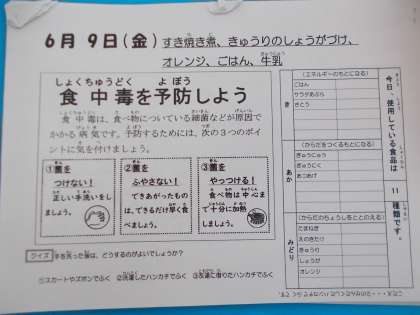 6月9日(金) すき焼き煮、きゅうりのしょうがづけ、
オレンジ、ごはん、牛乳
しょくちゅうどく よぼう
食中毒を予防しよう
食中毒は、食べ物についている細菌などが原因で
かかる病気です。予防するためには、次の3つのポイ
ントに気を付けましょう。
①菌を
つけない!
正しい手洗いをし
ましょう。
②菌を
ふやさない!
できあがったもの
は、できるだけ早く食
べましょう。
③菌を
やっつける!
食べ物は中心ま
で十分に加熱
しましょう。
クイズ 手を洗った後は、どうするのがよいでしょうか?
①スカートやズボンでふく ②洗濯したハンカチでふく ③友達に借りたハンカチでふく
今日、使用している食品は
11
種類です。
き
(エネルギーのもとになる)
ごはん
サラダあぶら
さとう
あか
(からだをつくるもとになる)
ぎゅうにゅう
ぎゅうにく
みどり
(からだのちょうしをととのえる)
たまねぎ
えのきたけ
きゅうり
しょうが
オレンジ